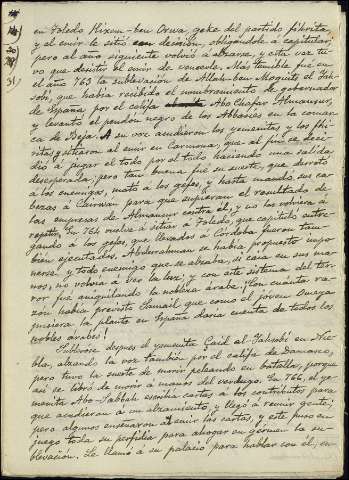 en Toledo Hixem-ben Orwa gefe del partido fihrita
y el emir le sitió con decisión, obligándole á capitular;
pero al año siguiente volvió á alzarse, y esta vez tu-
vo que desistir el emir de vencerle. Más temible fué en
el año 763 la sublevación de Allah-ben Moguits el Iah-
sobi, que había recibido el nombramiento de gobernador
de España por el califa Abo Chafar Almansur,
y levantó el pendón negro de los Abbasies en la comar-
ca de Beja. A su voz acudieron los yemenitas y los fih-
ritas y sitiaron al emir en Carmona; que al fin se deci-
dió á jugar el todo por el todo haciendo una salida
desesperada; pero tan buena fué su suerte, que derrotó
á los enemigos, mató á los gefes, y hasta mandó sus ca-
bezas á Cairwan para que supieran el resultado de
las empresas de Almansur contra él, y no las volviera á
repetir. En 764 vuelve á sitiar á Toledo, que capituló entre-
gando á los gefes, que llevados á Córdoba fueron tam-
bién ejecutados. Abderrahman se había propuesto impo-
nerse, y todo enemigo que se alzaba, si caía en sus ma-
nos, no volvía á ver la luz; y con este sistema del ter-
ror fué aniquilando la nobleza árabe. ¡Con cuánta ra-
zón había previsto Samail que como el joven Omeya
pusiera la planta en España daría cuenta de todos los
nobles árabes!
Sublevóse despues el yemenita Çaid al Iahsobi en Nie-
bla, alzando la voz también por el califa de Damasco,
pero tuvo la suerte de morir peleando en batalla, porque
así se libró de morir á manos del verdugo. En 766, el ye-
menita Abo-Sabbah escribía cartas á los contributos para
que acudieran á un alzamiento, y llegó á reunir gente;
pero algunos enseñaron al emir las cartas, y este puso en
juego toda su perfidia para ahogar en germen la su-
blevación. Le llamó á su palacio para hablar con él, en-